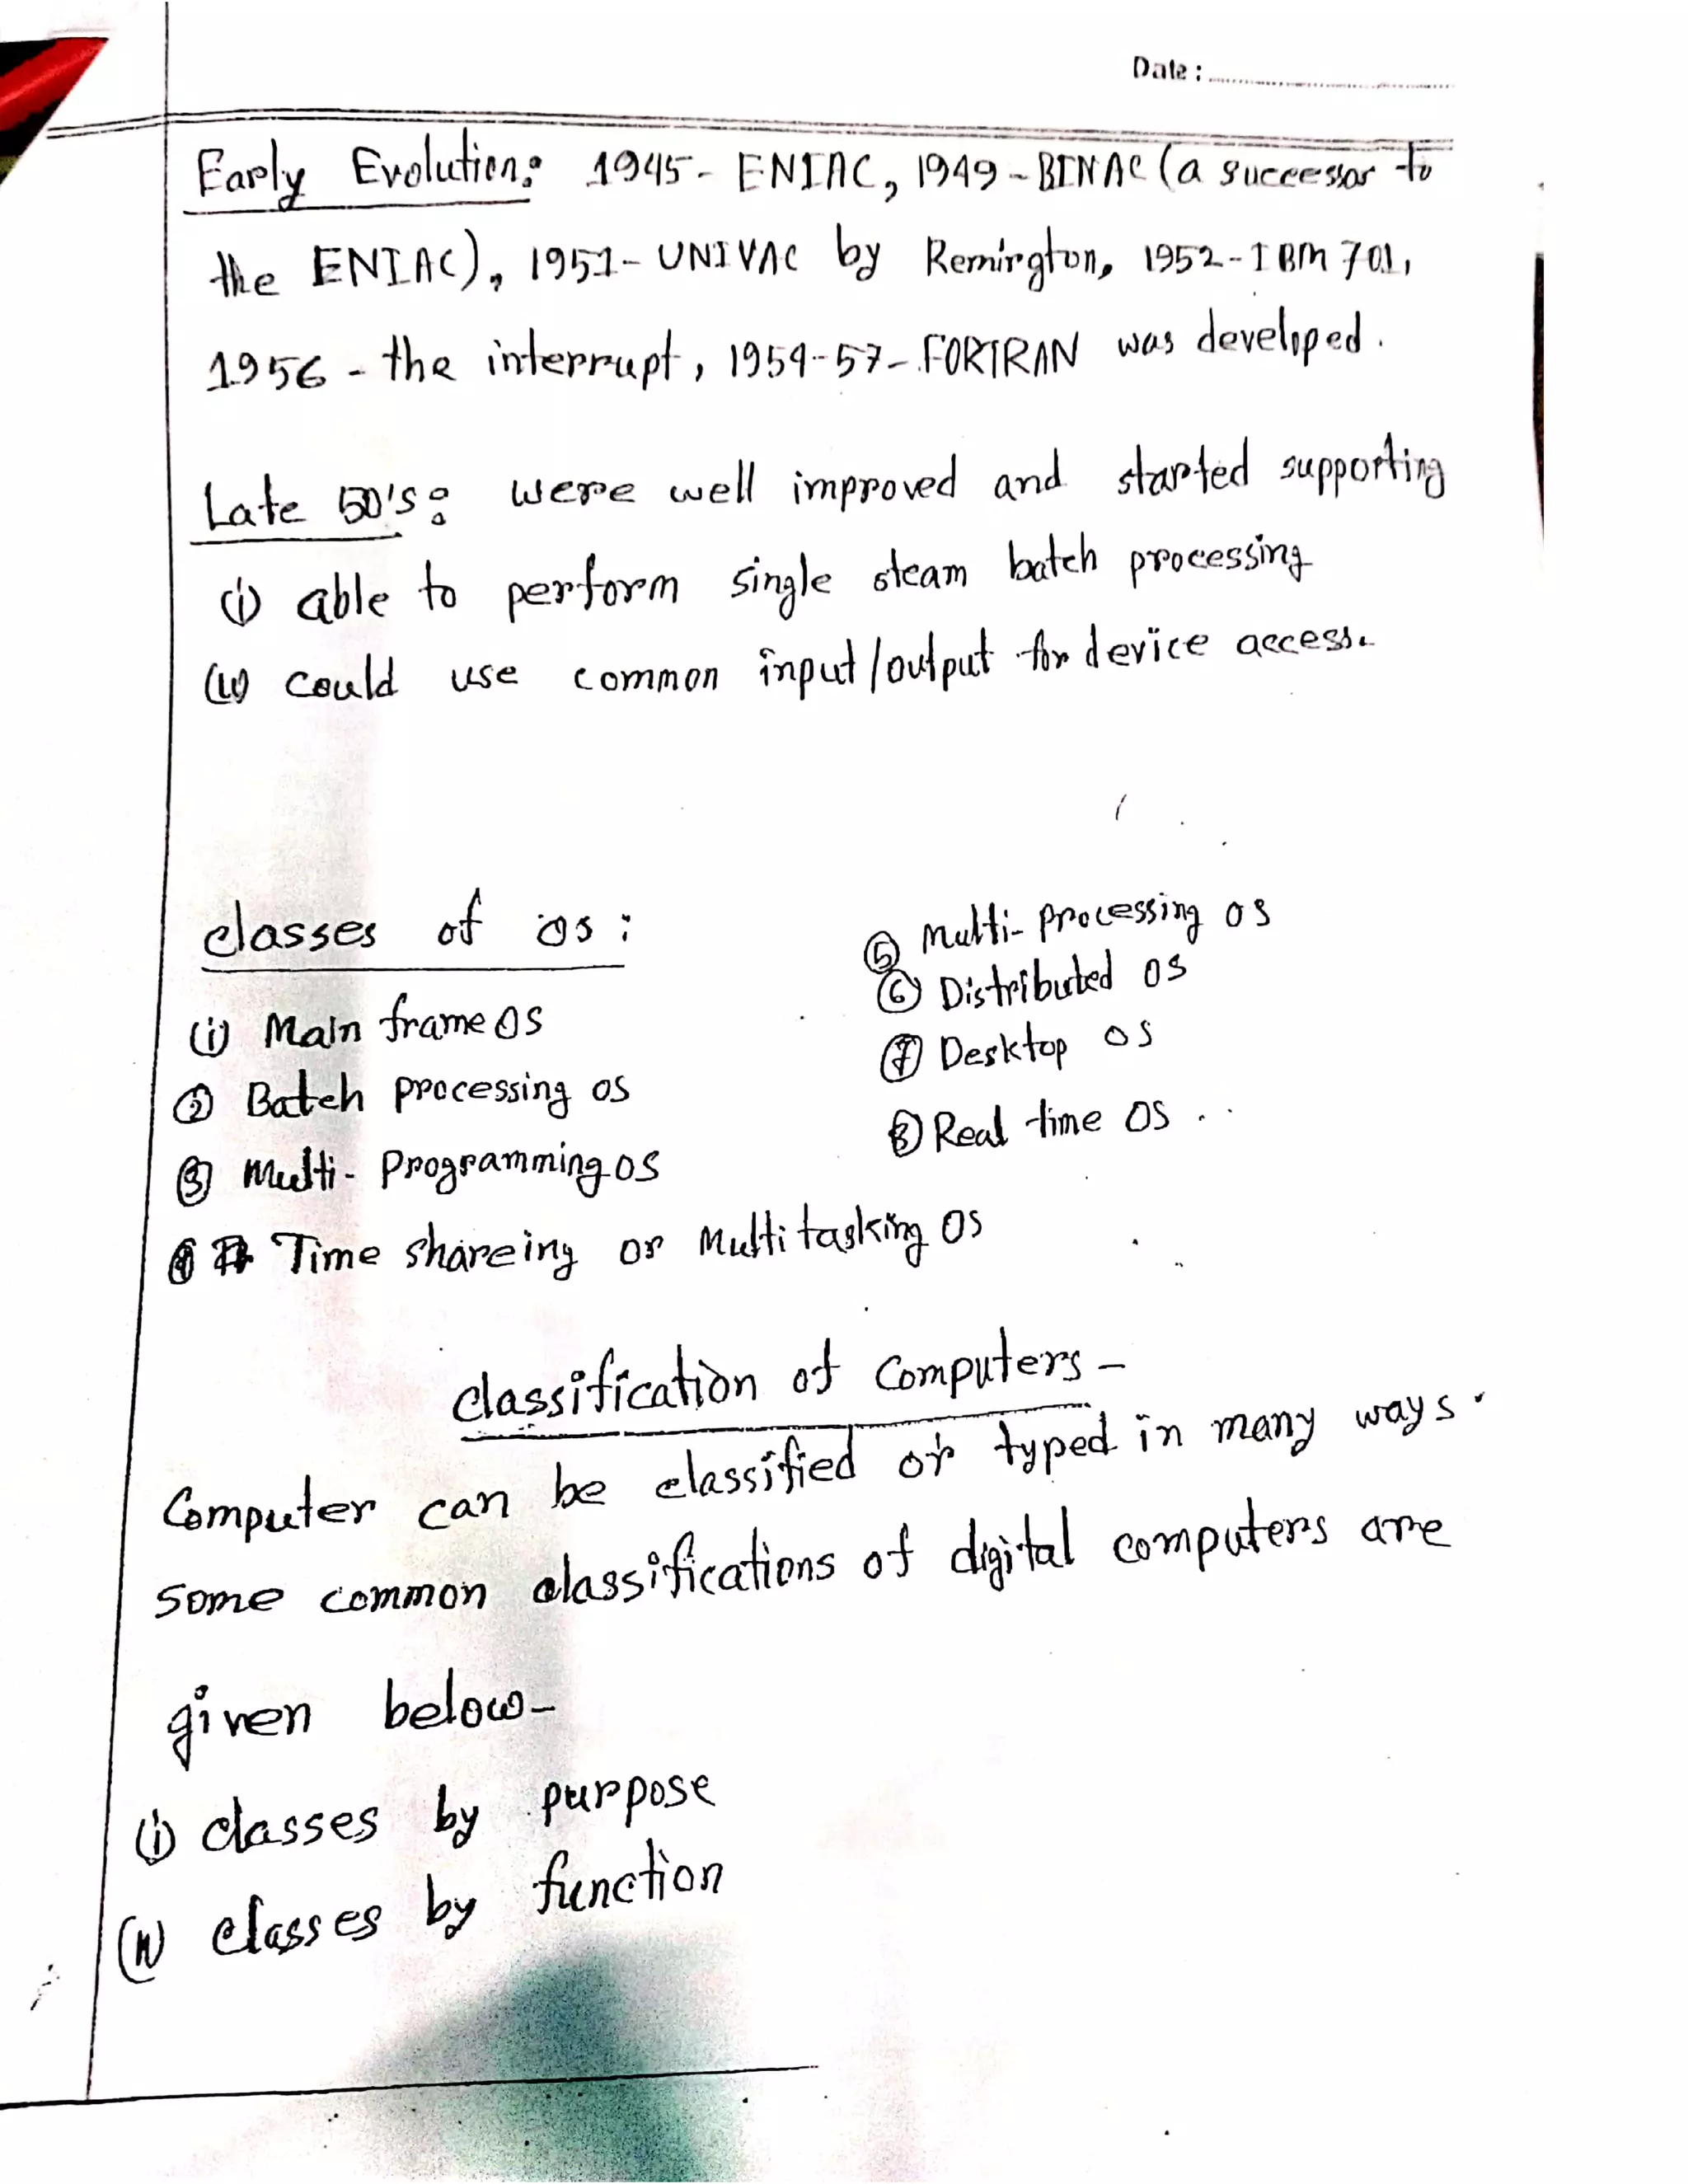 Date :
Early Evolution: 1945- ENIAC, 1949-BINAC (a successor to
the ENIAC), 1951- UNIVAC by Remington, 1952-IBM 701,
1956 - the interrupt, 1954-57- FORTRAN was developed.
Late 50's: were well improved and started supporting
(i) able to perform single steam batch processing
(ii) could use common input/output for device access.
classes of os :
(i) Main frame OS
② Batch processing os
③ Multi- Programming os
④ Time shareing or Multi tasking OS
⑤ Multi- processing os
⑥ Distributed os
⑦ Desktop os
⑧ Real time OS
classification of computers -
Computer can be classified or typed in many ways.
some common classifications of digital computers are
given below-
(i) classes by purpose
(ii) classes by function